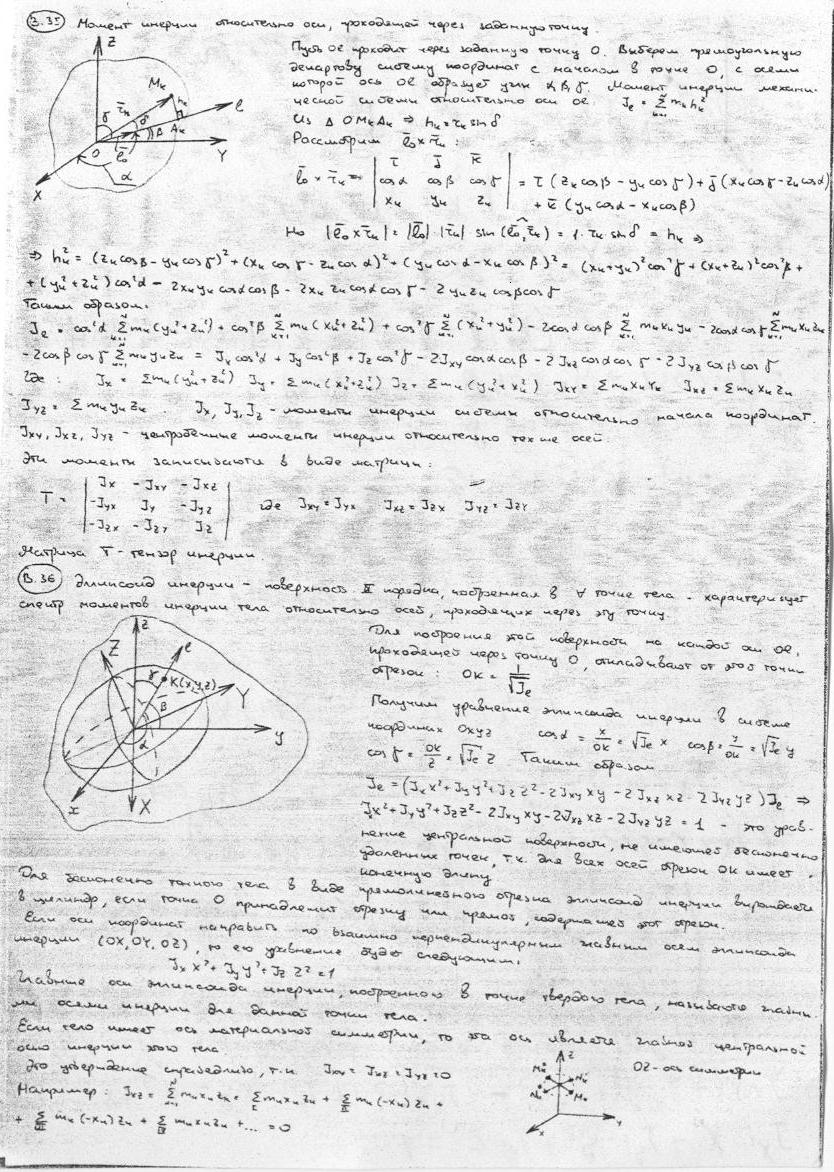 В.35 Момент инерции относительно оси, проходящей через заданную точку.
Пусть Ol проходит через заданную точку O. Выберем прямоугольную
декартову систему координат с началом в точке O, с осями
которой ось Ol образует углы α, β, γ. Момент инерции механи-
ческой системы относительно оси Ol. J_l = Σ m_k h_k²
Из Δ OM_kA_k ⇒ h_k = r_k sin δ
Рассмотрим l̄₀ × r̄_k :
l̄₀ × r̄_k = | ī j̄ k̄ |
| cosα cosβ cosγ | = ī (z_k cosβ - y_k cosγ) + j̄ (x_k cosγ - z_k cosα)
| x_k y_k z_k | + k̄ (y_k cosα - x_k cosβ)
Но |l̄₀ × r̄_k| = |l̄₀| |r̄_k| sin (l̄₀, r̄_k) = 1 · r_k sin δ = h_k ⇒
⇒ h_k² = (z_k cosβ - y_k cosγ)² + (x_k cosγ - z_k cosα)² + (y_k cosα - x_k cosβ)² = (x_k + y_k)² cos²γ + (x_k + z_k)² cos²β +
+ (y_k² + z_k²) cos²α - 2x_k y_k cosα cosβ - 2x_k z_k cosα cosγ - 2y_k z_k cosβ cosγ
Таким образом.
J_l = cos²α Σ m_k (y_k² + z_k²) + cos²β Σ m_k (x_k² + z_k²) + cos²γ Σ (x_k² + y_k²) - 2cosα cosβ Σ m_k x_k y_k - 2cosα cosγ Σ m_k x_k z_k
- 2cosβ cosγ Σ m_k y_k z_k = J_x cos²α + J_y cos²β + J_z cos²γ - 2J_xy cosα cosβ - 2J_xz cosα cosγ - 2J_yz cosβ cosγ
Где: J_x = Σ m_k (y_k² + z_k²) J_y = Σ m_k (x_k² + z_k²) J_z = Σ m_k (y_k² + x_k²) J_xy = Σ m_k x_k y_k J_xz = Σ m_k x_k z_k
J_yz = Σ m_k y_k z_k. J_x, J_y, J_z - моменты инерции системы относительно начала координат.
J_xy, J_xz, J_yz - центробежные моменты инерции относительно тех же осей.
Эти моменты записываются в виде матрицы:
T = | J_x -J_xy -J_xz |
| -J_yx J_y -J_yz | где J_xy = J_yx J_xz = J_zx J_yz = J_zy
| -J_zx -J_zy J_z |
Матрица T - тензор инерции.
В.36 Эллипсоид инерции - поверхность II порядка, построенная в ∀ точке тела - характеризует
спектр моментов инерции тела относительно осей, проходящих через эту точку.
Для построения этой поверхности на каждой оси Ol,
проходящей через точку O, откладывают от этой точки
отрезок: OK = 1/√J_l
Получим уравнение эллипсоида инерции в системе
координат Oxyz cosα = x/OK = √J_l x cosβ = y/OK = √J_l y
cosγ = OK/z = √J_l z. Таким образом
J_l = (J_x x² + J_y y² + J_z z² - 2J_xy xy - 2J_xz xz - 2J_yz yz) J_l ⇒
J_x x² + J_y y² + J_z z² - 2J_xy xy - 2J_xz xz - 2J_yz yz = 1 - это урав-
нение центральной поверхности, не имеющей бесконечно
удаленных точек, т.к. для всех осей отрезок OK имеет
конечную длину.
Для бесконечно тонкого тела в виде прямолинейного отрезка эллипсоид инерции вырождается
в цилиндр, если точка O принадлежит отрезку или прямой, содержащей этот отрезок.
Если оси координат направить по взаимно перпендикулярным главным осям эллипсоида
инерции (OX, OY, OZ), то его уравнение будет следующим:
J_x X² + J_y Y² + J_z Z² = 1
Главные оси эллипсоида инерции, построенного в точке твердого тела, называются главны-
ми осями инерции для данной точки тела.
Если тело имеет ось материальной симметрии, то эта ось является главной центральной
осью инерции этого тела.
Это утверждение справедливо, т.к. J_xy = J_xz = J_yz = 0
OZ - ось симметрии
Например: J_xz = Σ m_k x_k z_k = Σ m_k x_k z_k + Σ m_k (-x_k) z_k +
+ Σ m_k (-x_k) z_k + Σ m_k x_k z_k + ... = 0